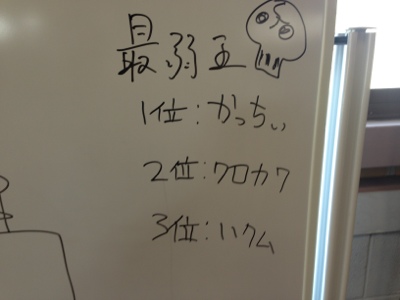 最弱王
1位:かっちぃ
2位:クロカワ
3位:ハクム